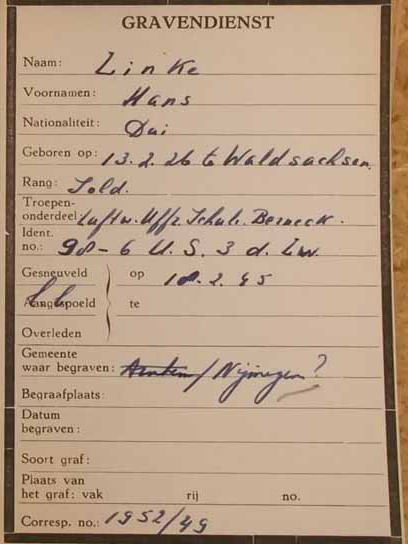 GRAVENDIENST
Naam: Linke
Voornamen: Hans
Nationaliteit: Dui
Geboren op: 13.2.26 te Waldsachsen.
Rang: Sold.
Troepen-
onderdeel: Luftw. Uffz. Schule. Berneck.
Ident.
no.: 98-6 U.S. 3 d. Lw.
Gesneuveld op 18.2.45
Aangespoeld te
Overleden
Gemeente
waar begraven: Arnhem/Nijmegen?
Begraafplaats:
Datum
begraven:
Soort graf:
Plaats van
het graf: vak rij no.
Corresp. no.: 1952/49